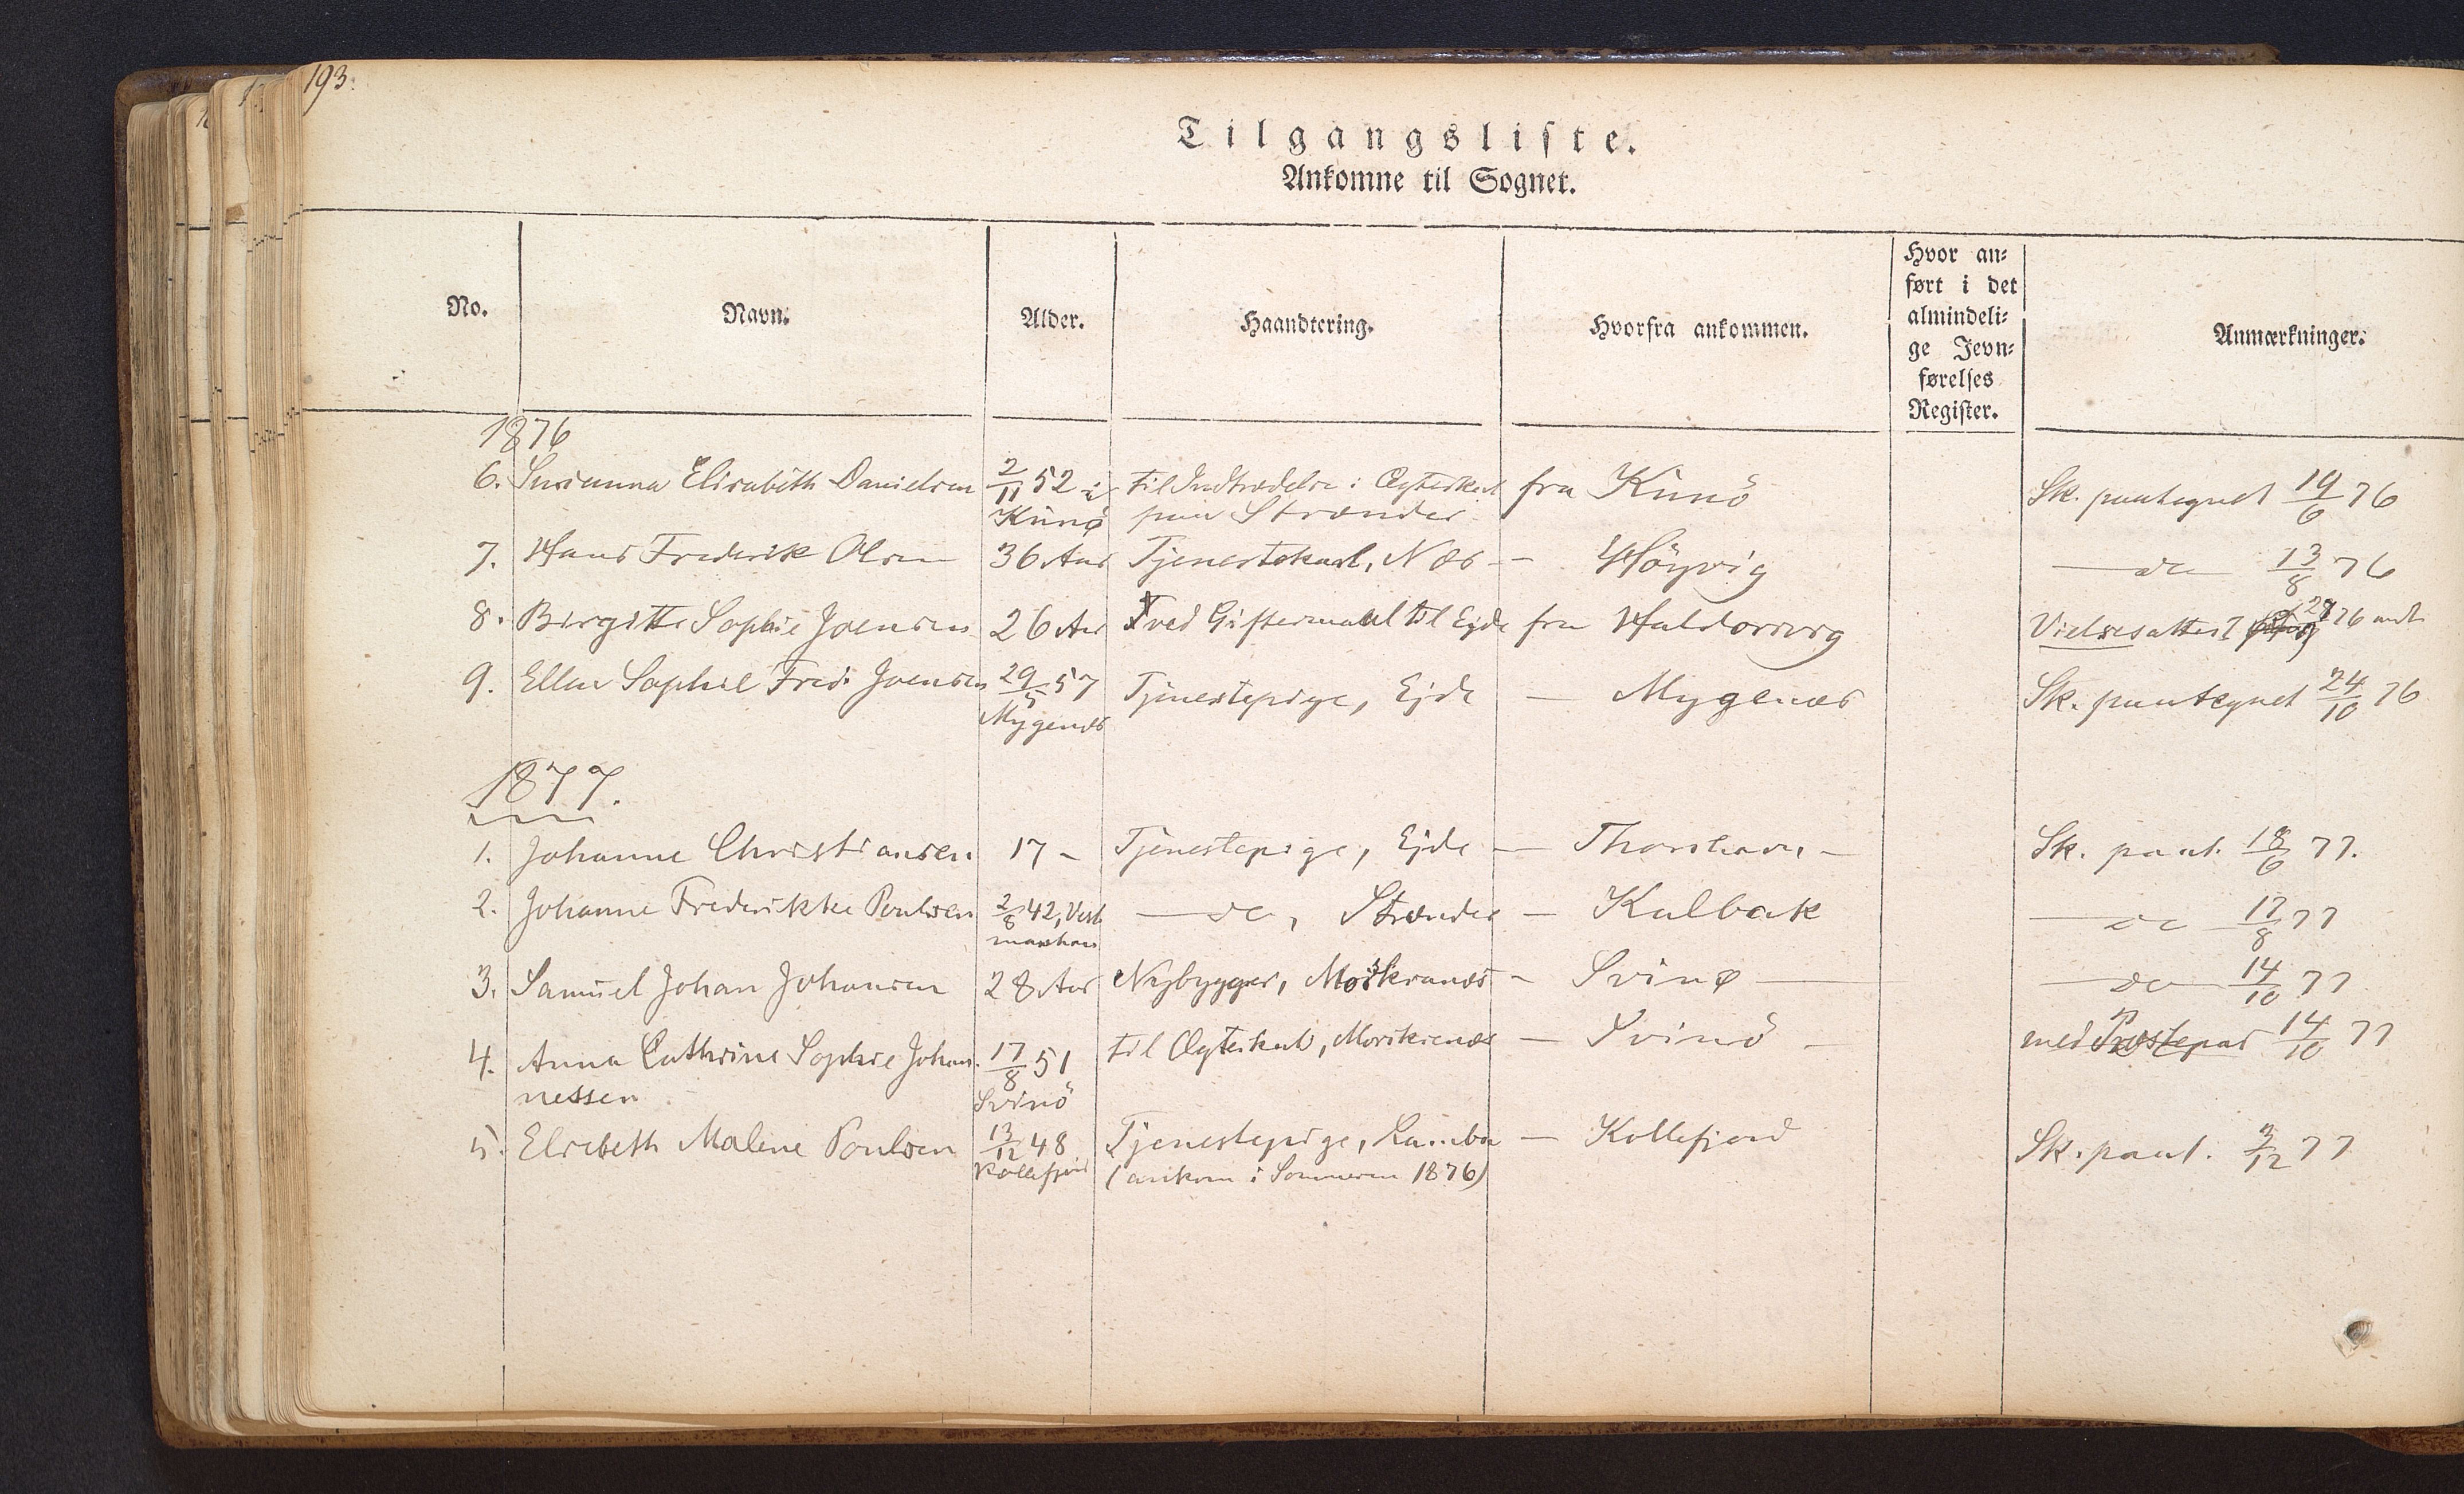 193.
Tilgangsliste.
Ankomne til Sognet.
No. Navn. Alder. Haandtering. Hvorfra ankommen. Hvor an= ført i det almindeli= ge Jevn= førelses Register. Anmærkninger.
1876
6. Susanna Elisabeth Danielsen 2/11 52 i til Indtrædelse i Ægteskab fra Kunö Sk. paategnet 19/6 76
Kunø paa Strænder
7. Hans Frederik Olsen 36 Aar Tjenestekarl, Næs — Höyvig — do — 13/8 76
8. Birgitte Sophie Joensen 26 Aar ved Giftermaal til Ejde fra Haldorsvig Vielsesattest 76
9. Ellen Sophie Fred. Joensen 29/5 57 Tjenestepige, Ejde — Mygenæs Sk. paategnet 24/10 76
Mygenæs
1877.
1. Johanne Christiansen 17 - Tjenestepige, Ejde — Thorshavn — Sk. paat. 18/6 77.
2. Johanne Frederikke Poulsen 2/8 42, Vest — do, Strænder — Kalbak — do — 17/8 77
manhavn
3. Samuel Johan Johansen 28 Aar Nybygger, Morskranæs - Svinø — — do — 14/10 77
4. Anna Cathrine Sophie Johan- 17/8 51 til Ægteskab, Morskrenæs — Svinö — med Præstepas 14/10 77
nessen Svinö
5. Elsebeth Malene Poulsen 13/12 48 Tjenestepige, Lamba — Kollefjord Sk. paat. 3/12 77
Kollefjord (ankom i Sommeren 1876)